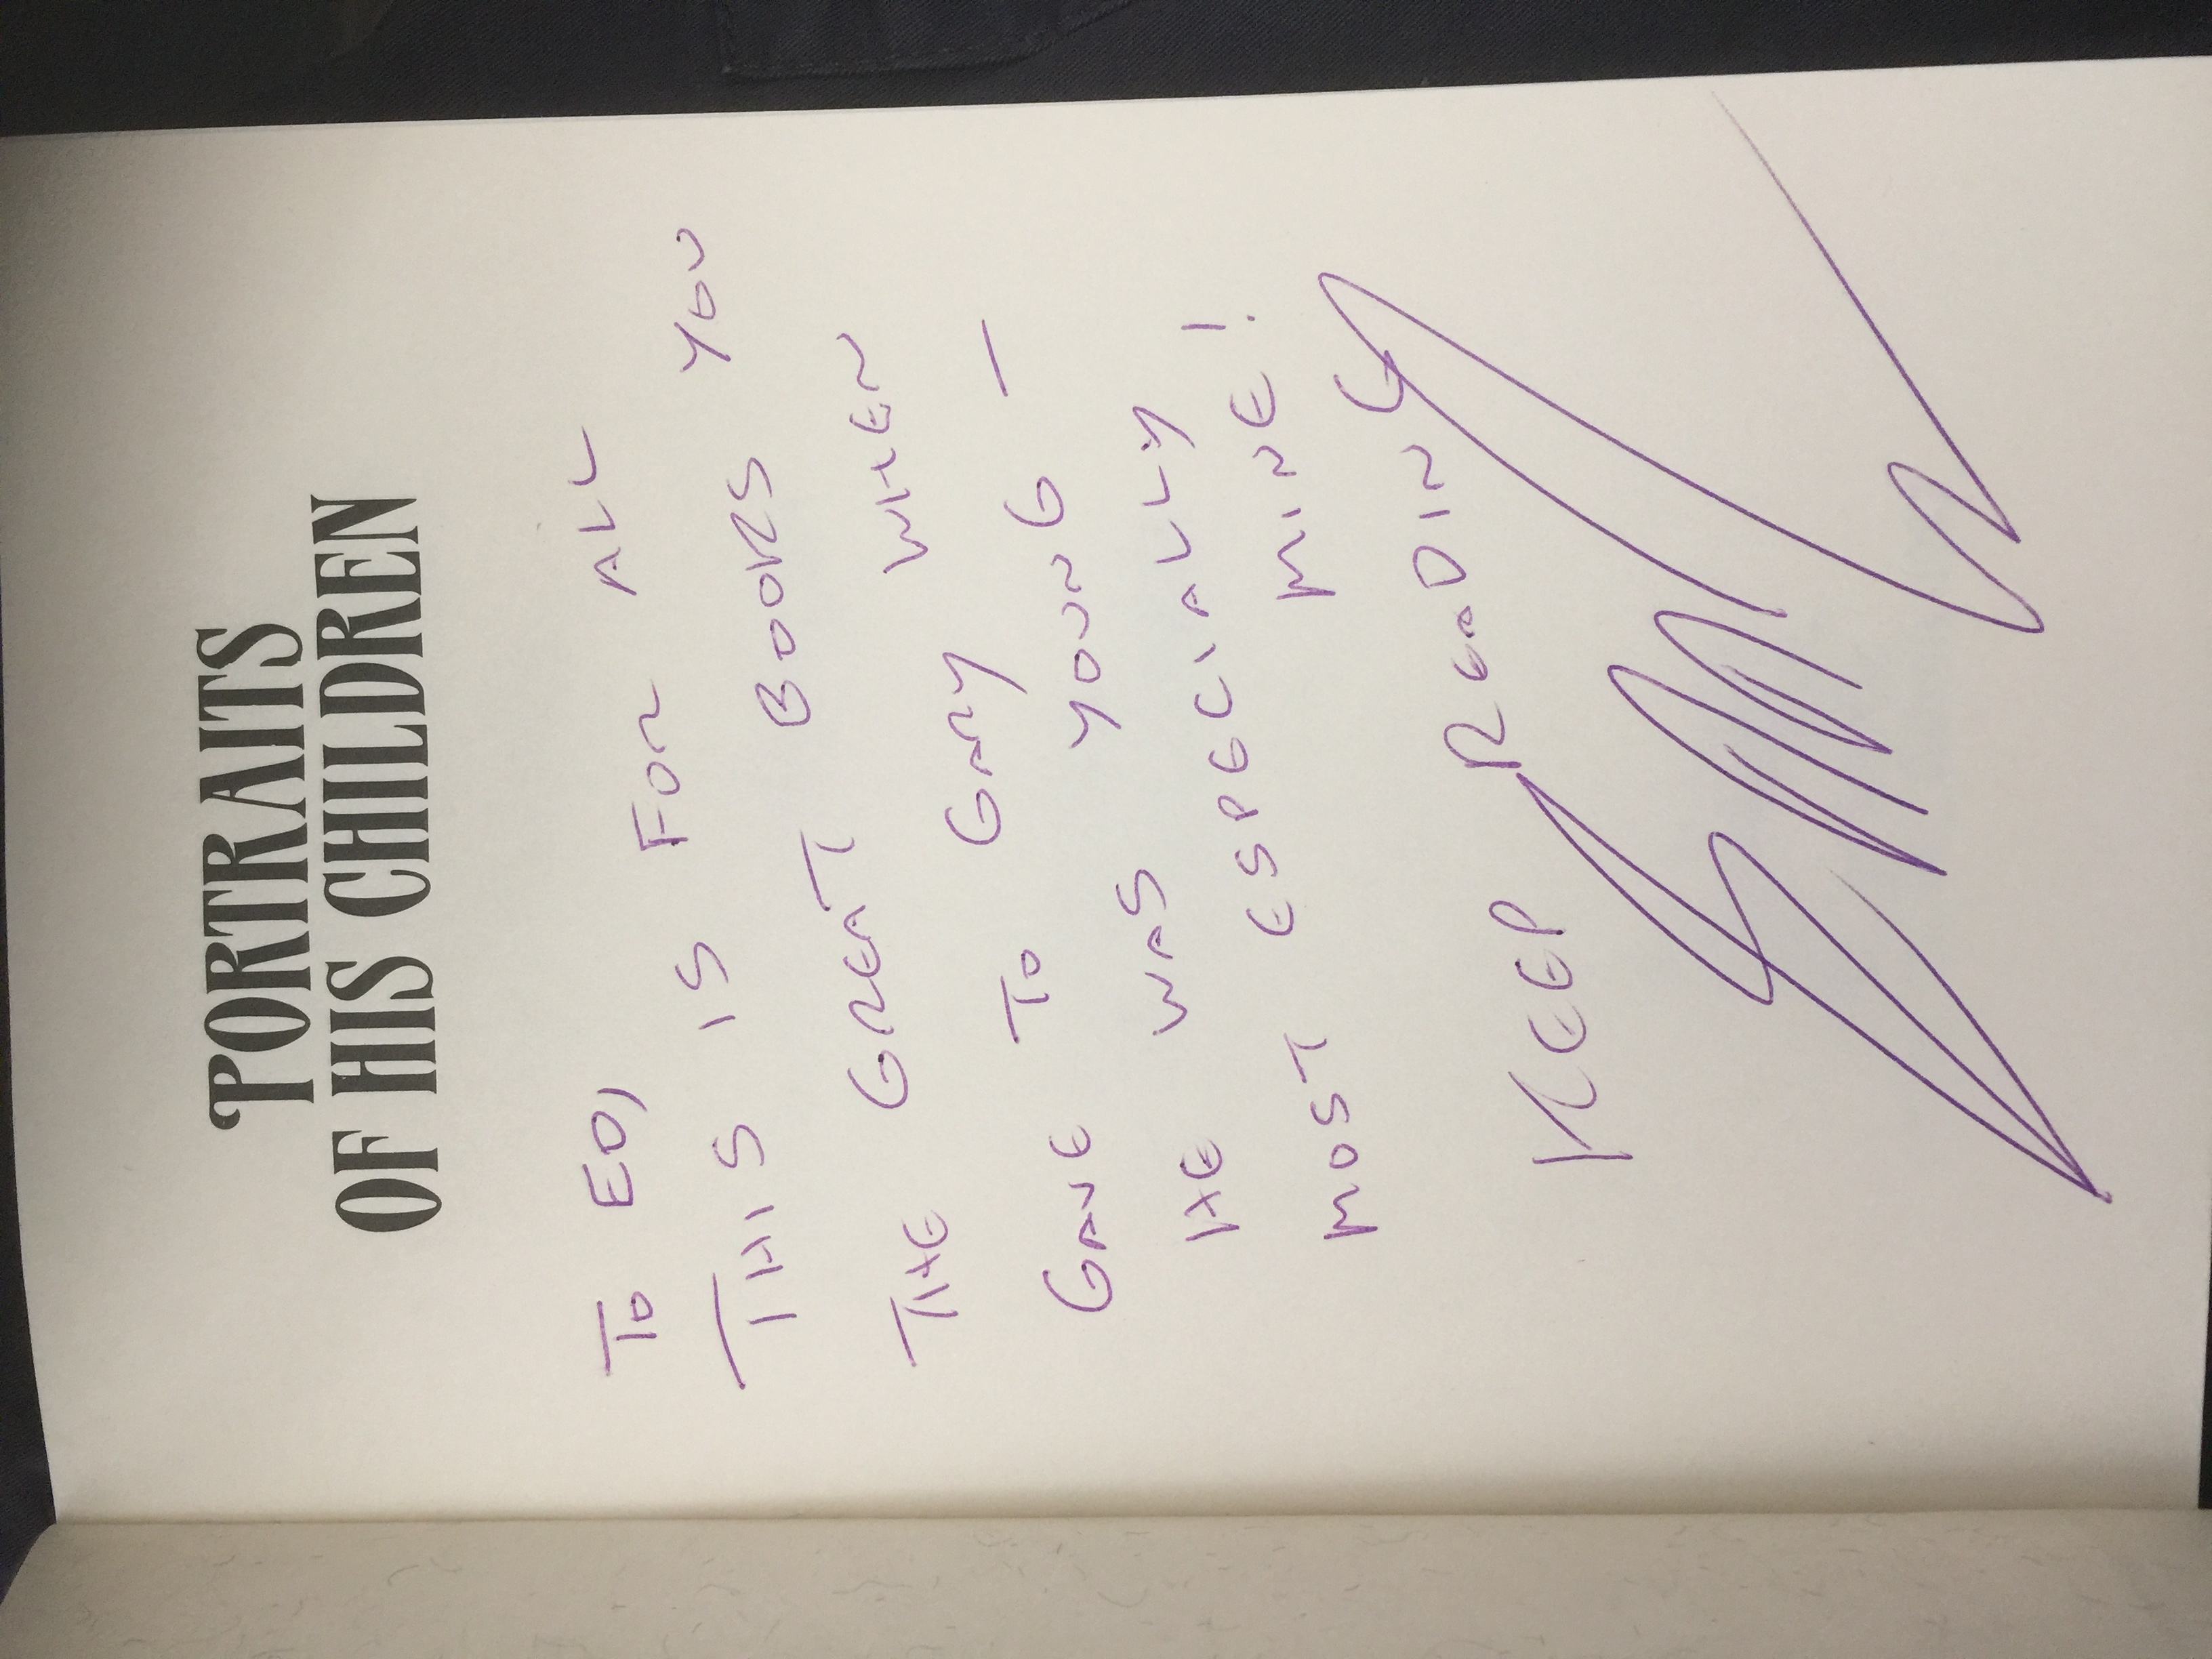 PORTRAITS
OF HIS CHILDREN
TO ED,
THIS IS FOR ALL
THE GREAT BOOKS YOU
GAVE TO GARY WHEN
HE WAS YOUNG —
MOST ESPECIALLY
MINE!
KEEP READING